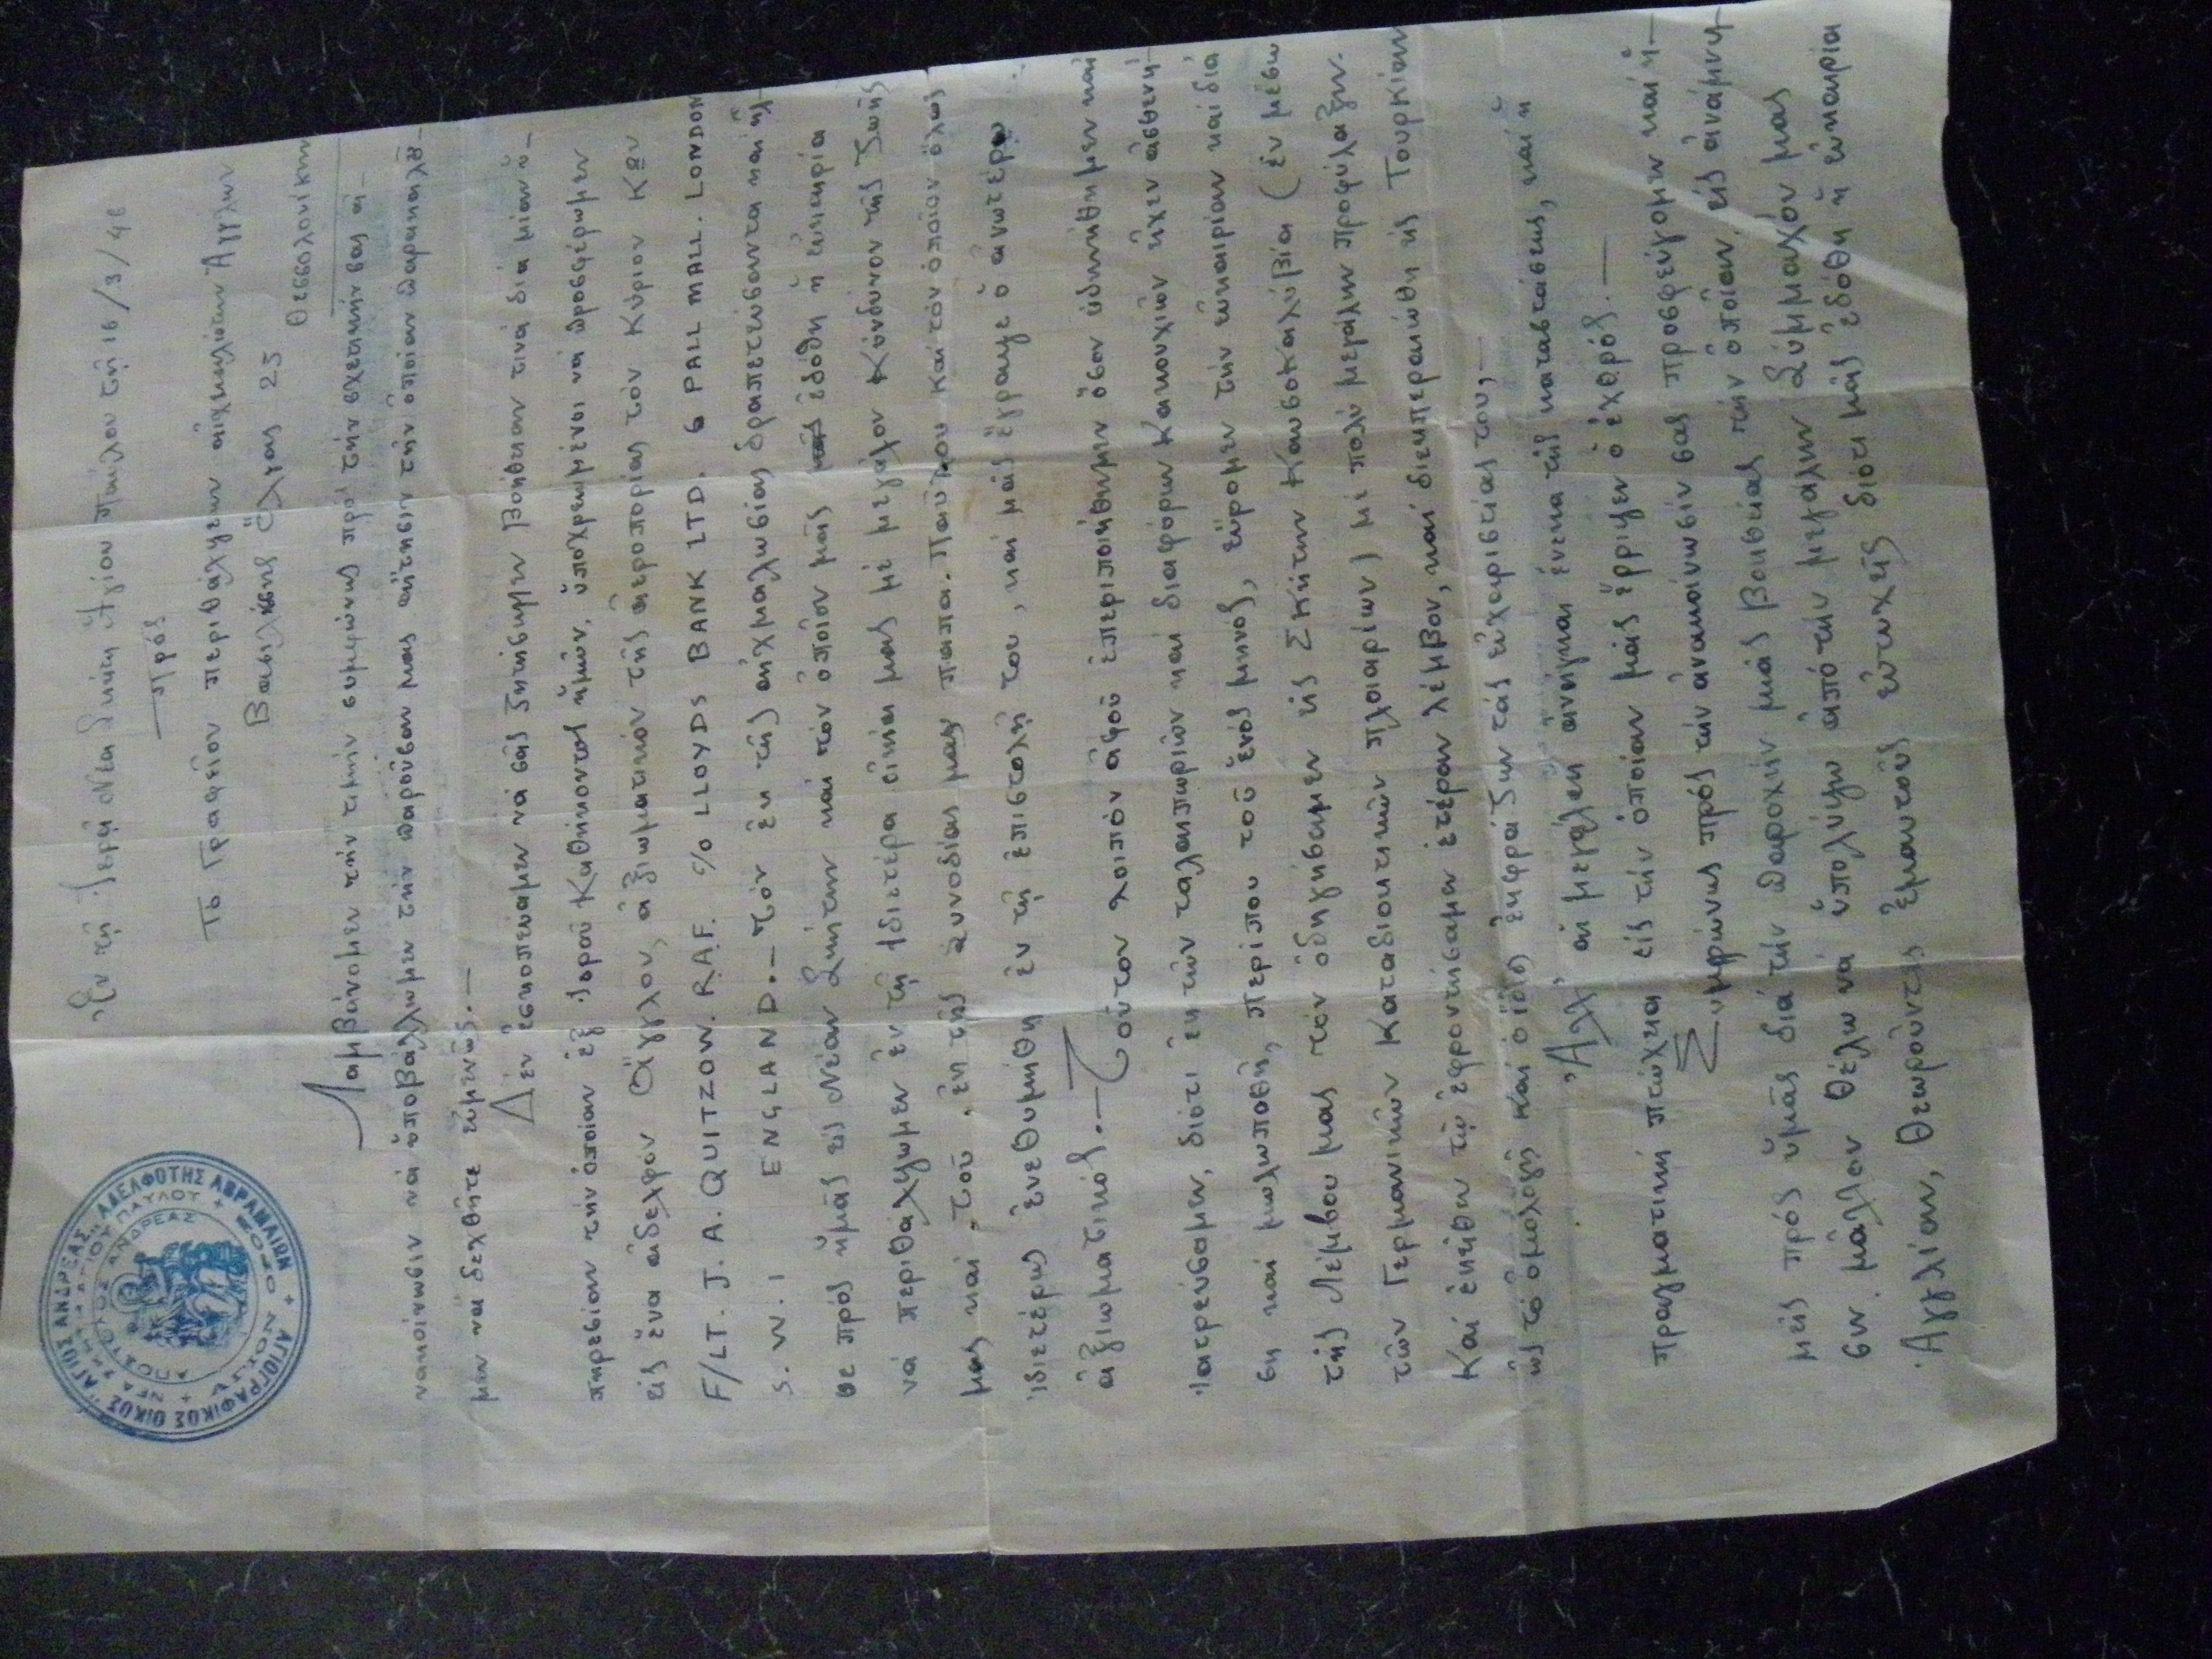 ΑΓΙΟΓΡΑΦΙΚΟΣ ΟΙΚΟΣ "ΑΓΙΟΣ ΑΝΔΡΕΑΣ" ΑΔΕΛΦΟΤΗΣ ΑΒΡΑΜΑΙΩΝ
ΝΕΑ ΣΚΗΤΗ ΑΓΙΟΥ ΠΑΥΛΟΥ
ΑΠΟΣΤΟΛΟΣ ΑΝΔΡΕΑΣ
Ἐν τῇ Ἱερᾷ Νέᾳ Σκήτῃ Ἁγίου Παύλου τῇ 16/3/46
Πρός
Τό Γραφεῖον περιθάλψεων αἰχμαλώτων Ἄγγλων
Βασιλίσσης Ὄλγας 25
Θεσσαλονίκην
Λαμβάνομεν τήν τιμήν συμφώνως πρός τήν σχετικήν σας ἀ-
νακοίνωσιν νά ὑποβάλλωμεν τήν παροῦσαν μας αἴτησιν τήν ὁποίαν παρακαλοῦ-
μεν νά δεχθῆτε εὐμενῶς.—
Δέν ἐσκοπεύαμεν νά σᾶς ζητήσωμεν βοήθειαν τινά διά μίαν ὑ-
πηρεσίαν τήν ὁποίαν ἐξ Ἱεροῦ Καθήκοντος ἡμῶν, ὑποχρεωμένοι νά προσφέρωμεν
εἰς ἕνα ἀδελφον Ἄγγλον, ἀξιωματικόν τῆς ἀεροπορίας τόν Κύριον Κων
F/LT. J. A. QUITZOW. R.A.F. c/o LLOYDS BANK LTD. 6 PALL MALL. LONDON
S. W. 1 ENGLAND.— τόν ἐκ τῆς αἰχμαλωσίας δραπετεύσοντα καί ἦλ-
θε πρός ἡμᾶς εἰς Νέαν Σκήτην καί τόν ὁποῖον μᾶς ἐδόθη ἡ εὐκαιρία
νά περιθάλψωμεν ἐν τῇ ἰδιετέρᾳ οἰκίᾳ μας μέ μεγάλον Κίνδυνον τῆς Ζωῆς
μας καί τοῦ ἐκ τῆς συνοδίας μας παπα. Παύλου καί τόν ὁποῖον ὅλως
ἰδιετέρως ἐνεθυμήθη ἐν τῇ ἐπιστολῇ του, καί μᾶς ἔγραψε ὁ ἀνωτέρω
ἀξιωματικός.— Τοῦτον λοιπόν ἀφοῦ ἐπεριποιήθημεν ὅσον ἠδυνήθημεν καί
Ἰατρεύσαμεν, διότι ἐκ τῶν ταλαιπωριῶν καί διαφόρων Κακουχιῶν εἶχεν ἀσθενή-
ση καί μωλωποθῆ, περίπου τοῦ ἑνός μηνός, εὕρομεν τήν εὐκαιρίαν καί διά
τῆς Λέμβου μας τόν ὁδηγήσαμεν εἰς Σκήτην Καυσοκαλύβια (ἐν μέσω
τῶν Γερμανικῶν Καταδιοκτικῶν πλοιαρίων) μέ πολύ μεγάλην προφύλαξιν.
Καί ἐκεῖθεν τῷ ἐφροντίσαμεν ἑτέραν λέμβον, καί διεπεραιώθη εἰς Τουρκίαν
ὡς τό ὁμολογῇ καί ὁ ἴδιος ἐκφράζων τάς εὐχαριστίας του,—
Ἀλλ' αἱ μεγάλαι ἀνάγκαι ἕνεκα τῆς καταστάσεως, καί ἡ
πραγματική πτώχεια εἰς τήν ὁποίαν μᾶς ἔρριψεν ὁ ἐχθρός.—
Συμφώνως πρός τήν ἀνακοίνωσίν σας προσφεύγομεν καί ἡ-
μεῖς πρός ὑμᾶς διά τήν παροχήν μιᾶς βοηθείας τήν ὁποίαν εἰς ἀνάμνη-
σιν. μᾶλλον θέλω νά ὑπολήψω ἀπό τήν μεγάλην Σύμμαχόν μας
Ἀγγλίαν, θεωροῦντες ἐμαυτούς εὐτυχῆς διότι μᾶς ἐδόθη ἡ εὐκαιρία